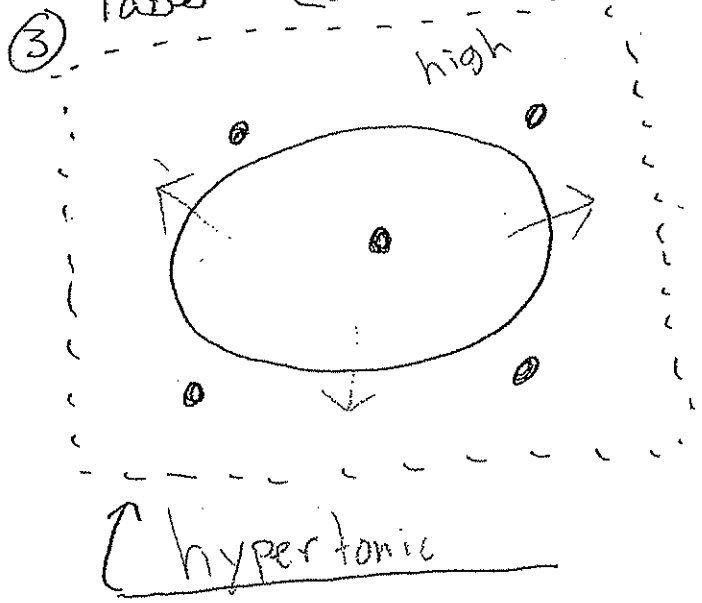 ③
high
hypertonic